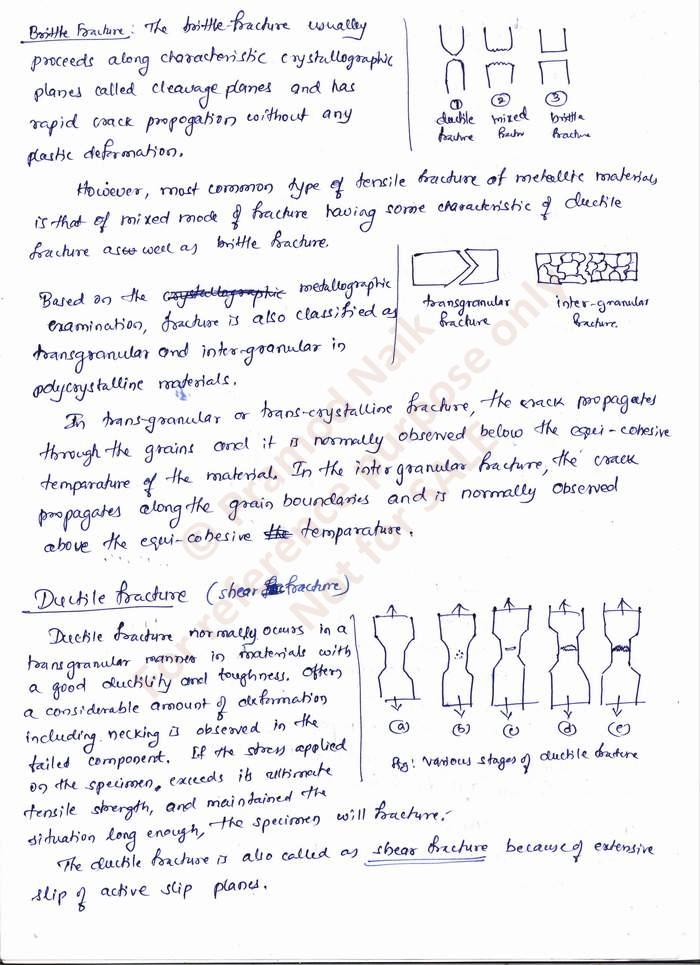 Brittle Fracture: The brittle fracture usually
proceeds along characteristic crystallographic
planes called cleavage planes and has
rapid crack propogation without any
plastic deformation.
① ② ③
ductile mixed brittle
fracture fractur fracture
However, most common type of tensile fracture of metallic materials
is that of mixed mode of fracture having some characteristic of ductile
fracture as well as brittle fracture.
Based on the crystallographic metallographic
examination, fracture is also classified as
transgranular and inter-granular in
polycrystalline materials.
transgranular inter-granular
fracture fracture.
In trans-granular or trans-crystalline fracture, the crack propagates
through the grains and it is normally observed below the equi-cohesive
temparature of the material. In the intergranular fracture, the crack
propagates along the grain boundaries and is normally observed
above the equi-cohesive the temparature.
Ductile fracture (shear fracture)
Ductile fracture normally occurs in a
transgranular manner in materials with
a good ductility and toughness. Often
a considerable amount of deformation
including necking is observed in the
failed component. If the stress applied
on the specimen, exceeds its ultimate
tensile strength, and maintained the
situation long enough, the specimen will fracture.
(a) (b) (c) (d) (e)
Fig: Various stages of ductile fracture
The ductile fracture is also called as shear fracture because of extensive
slip of active slip planes.
© Pramod Naik
For reference purpose only
Not for SALE